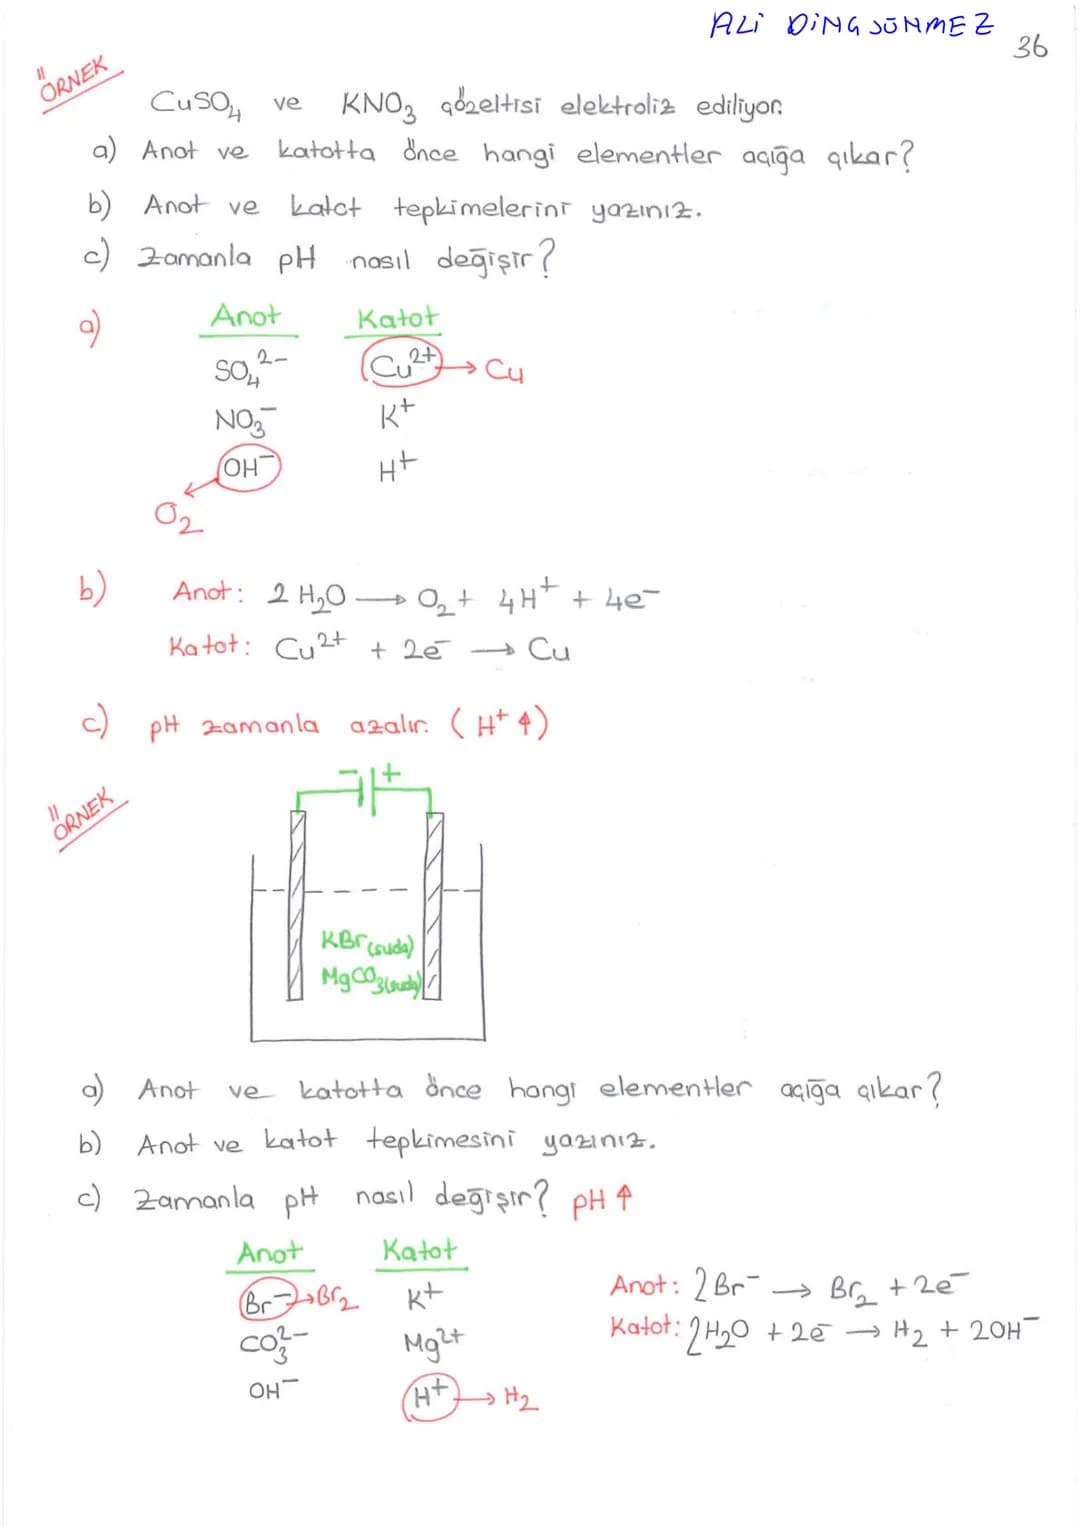 ALİ DİNGSÖNMEZ
36
ÖRNEK
CuSO₄ ve KNO₃ çözeltisi elektroliz ediliyor.
a) Anot ve katotta önce hangi elementler açığa çıkar?
b) Anot ve katot tepkimelerini yazınız.
c) Zamanla pH nasıl değişir?
a) Anot Katot
SO₄²⁻ Cu²⁺ → Cu
NO₃⁻ K⁺
OH⁻ H⁺
O₂
b) Anot: 2 H₂O → O₂ + 4H⁺ + 4e⁻
Katot: Cu²⁺ + 2e⁻ → Cu
c) pH zamanla azalır. (H⁺ ↑)
ÖRNEK
- +
KBr(suda)
MgCO₃(suda)
a) Anot ve katotta önce hangi elementler açığa çıkar?
b) Anot ve katot tepkimesini yazınız.
c) Zamanla pH nasıl değişir? pH ↑
Anot Katot
Br⁻ → Br₂ K⁺
CO₃²⁻ Mg²⁺
OH⁻ H⁺ → H₂
Anot: 2Br⁻ → Br₂ + 2e⁻
Katot: 2H₂O + 2e⁻ → H₂ + 2OH⁻